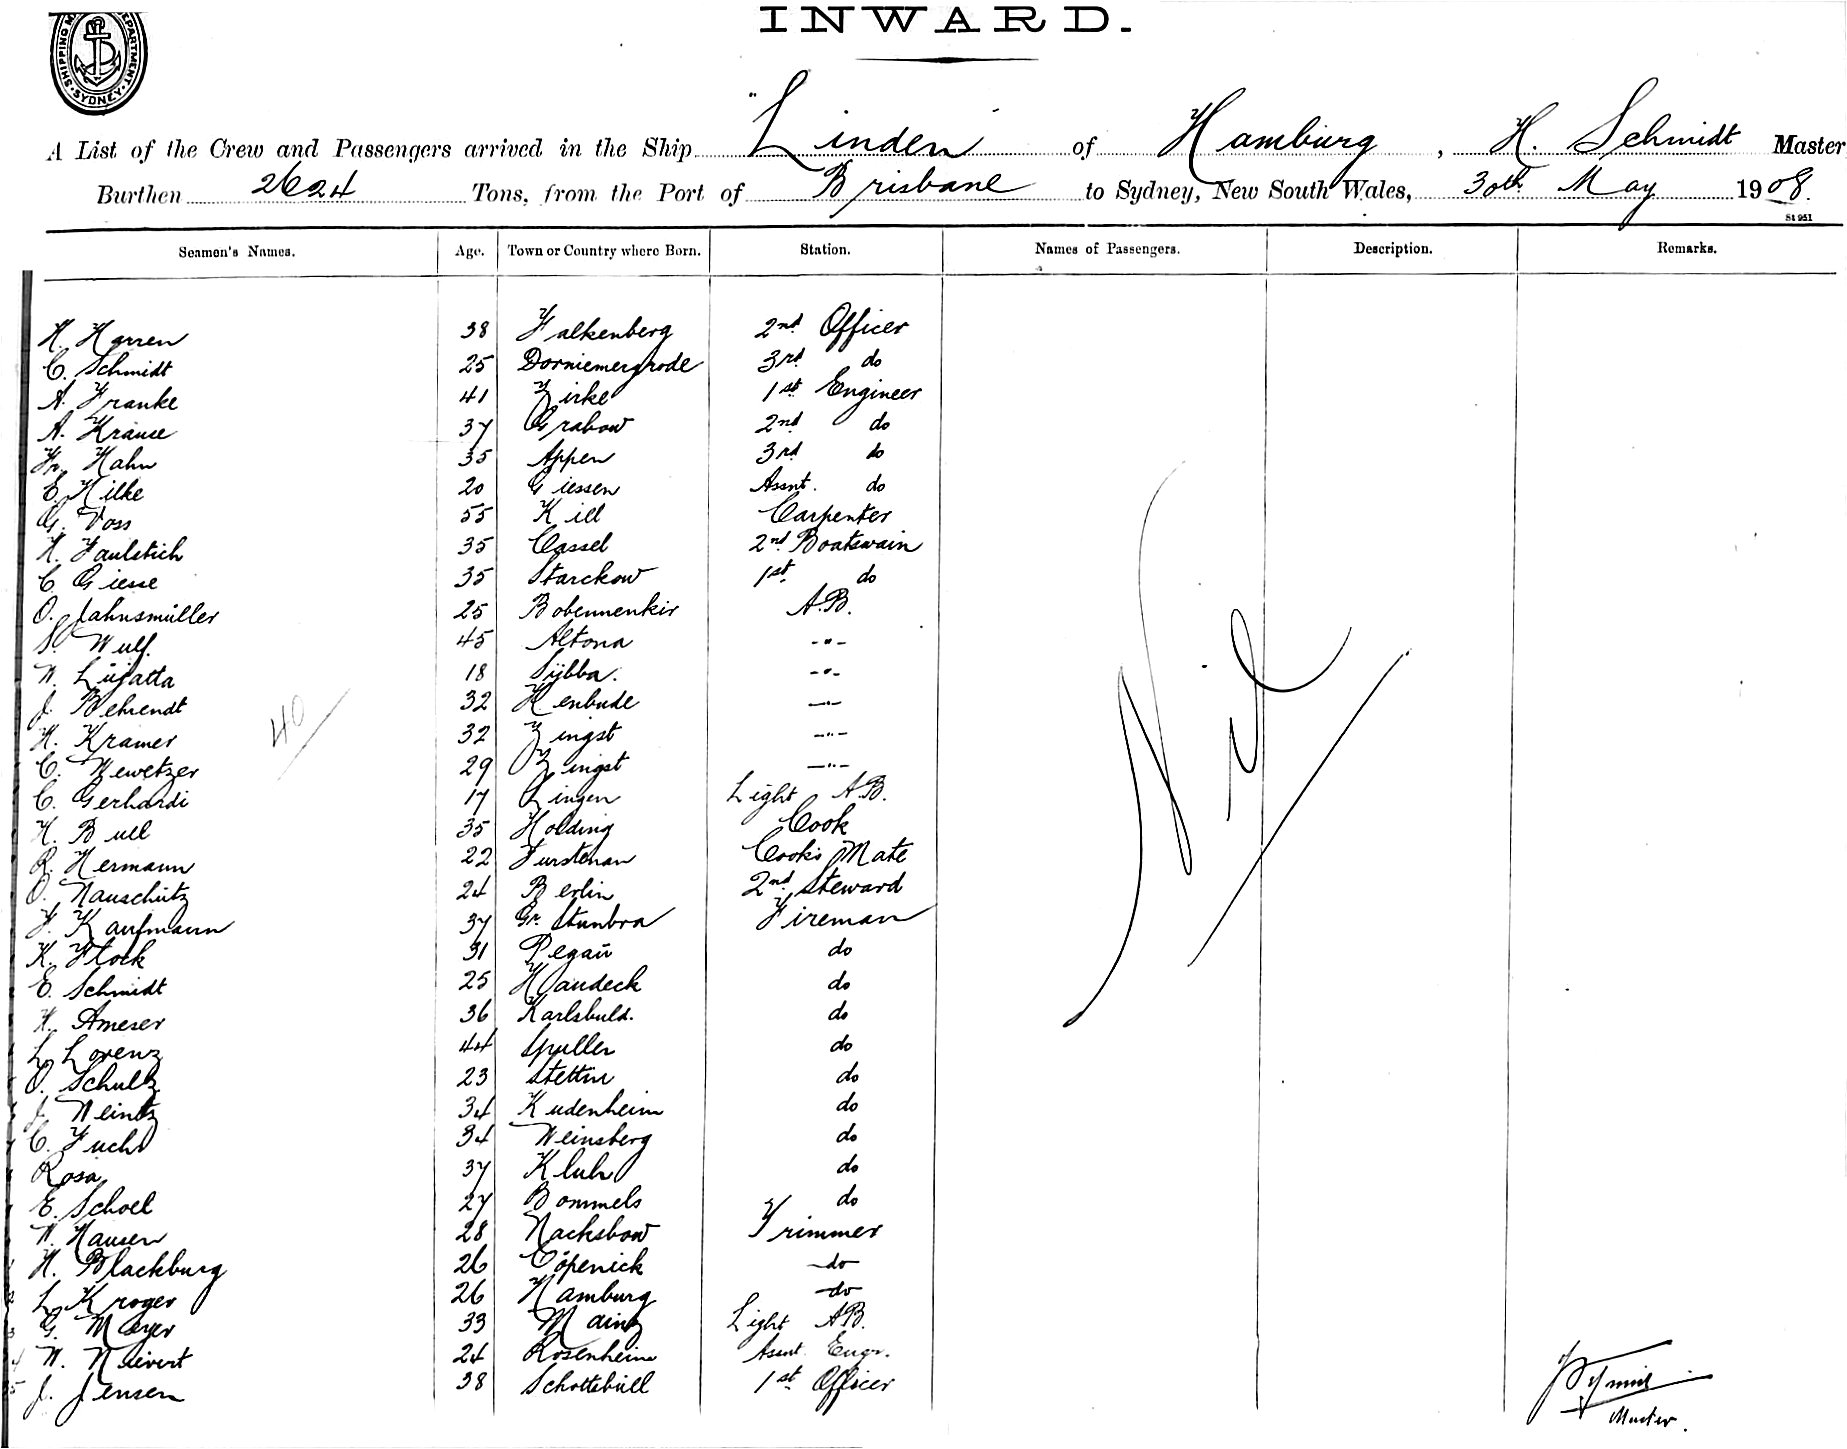 INWARD.
SHIPPING DEPARTMENT. SYDNEY
A List of the Crew and Passengers arrived in the Ship "Linden" of Hamburg, H. Schmidt Master
Burthen 2624 Tons, from the Port of Brisbane to Sydney, New South Wales, 30th May 1908.
St 951
Seamen's Names. Age. Town or Country where Born. Station. Names of Passengers. Description. Remarks.
H. Harren 38 Falkenberg 2nd Officer
C. Schmidt 25 3rd do
A. Franke 41 Zirke 1st Engineer
A. Krause 37 Grabow 2nd do
Fr. Hahn 35 Appen 3rd do
E. Hilke 20 Giessen Assnt. do
G. Voss 55 Kiel Carpenter
H. Faulstich 35 Cassel 2nd Boatswain
C. Giese 35 Starckow 1st do
O. Jahnsmüller 25 A.B.
S. Wulf. 45 Altona -"-
W. 18 Sÿbba. -"-
J. Behrendt 32 Henbude -"-
H. Kramer 32 Zingst -"-
C. Newetzer 29 Zingst -"-
40
C. Gerhardi 17 Lingen Light A.B.
H. Bull 35 Holding Cook
R. Hermann 22 Furstenau Cook's Mate
O. Nauschütz 24 Berlin 2nd Steward
F. Kaufmann 37 Gr. Fireman
K. Flock 31 Pegau do
E. Schmidt 25 Haudeck do
H. Ameser 36 Karlsbuld. do
L. Lorenz 44 Spuller do
O. Schultz 23 Stettin do
J. Weintz 34 Kudenheim do
C. Fuchs 34 Weinsberg do
Rosa 37 Kluh do
E. Schoel 27 Bommels do
W. Hausen 28 Nacksbow Trimmer
H. Blackburg 26 Cöpenick do
L. Kroger 26 Hamburg do
G. Meyer 33 Mainz Light A.B.
W. 24 Rosenheim Assnt. Engr.
J. Jensen 38 Schottebüll 1st Officer
Nil
Master.